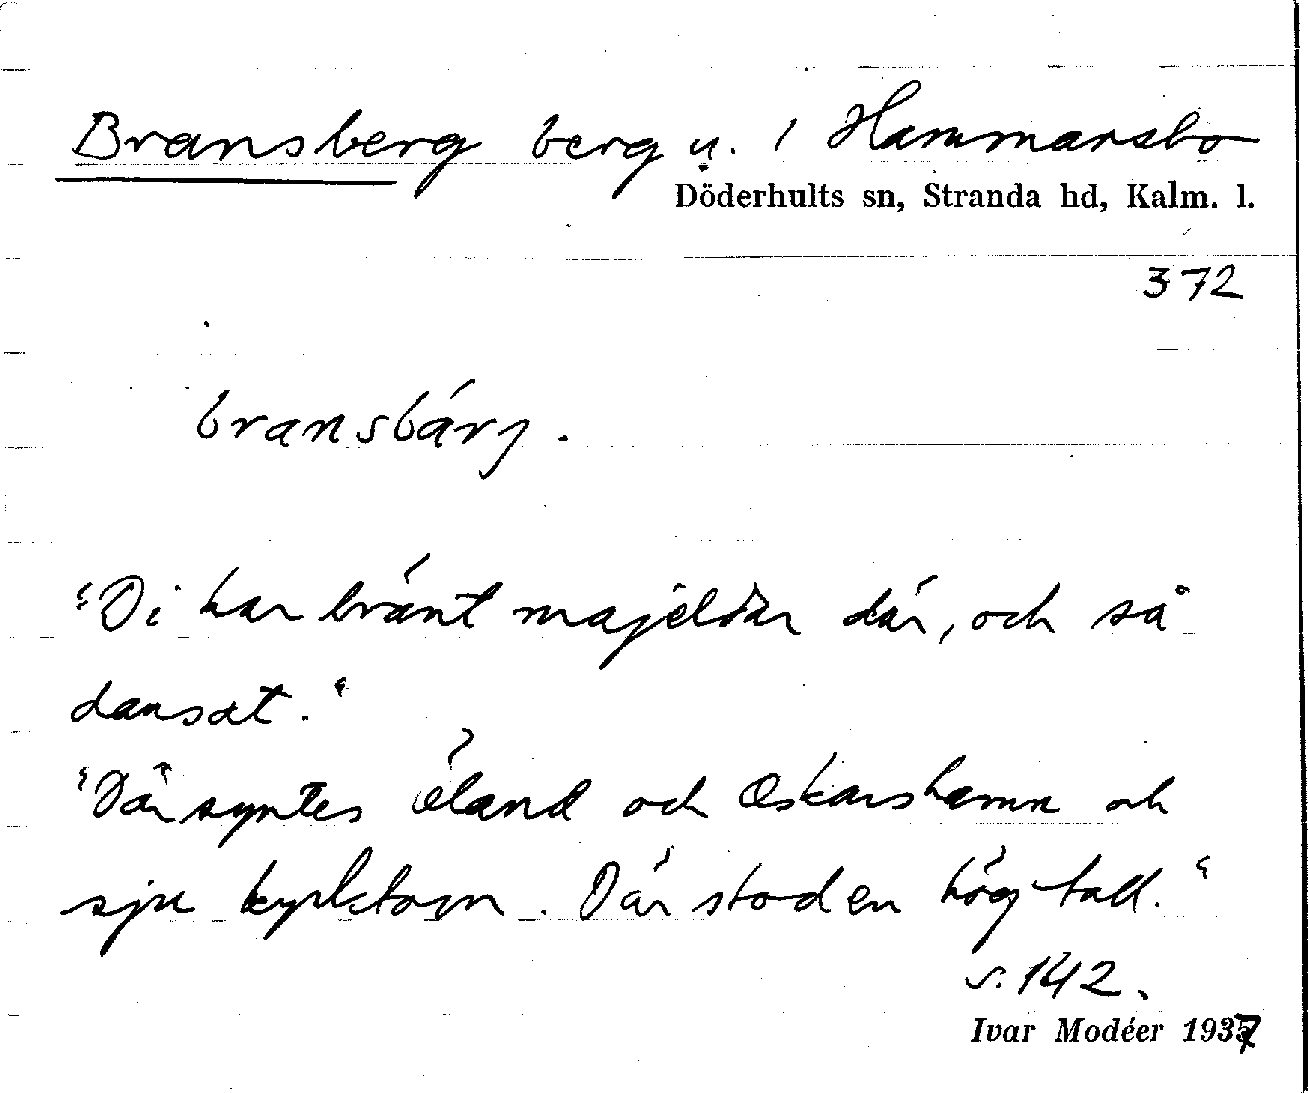 Bransberg berg u. 1 Hammarsbo
Döderhults sn, Stranda hd, Kalm. l.
372
bransbárj.
"Di har bränt majeldar där, och så
dansat."
"Där syntes Öland och Oskarshamn och
sju kyrktorn. Där stod en hög tall."
s. 142.
Ivar Modéer 1937